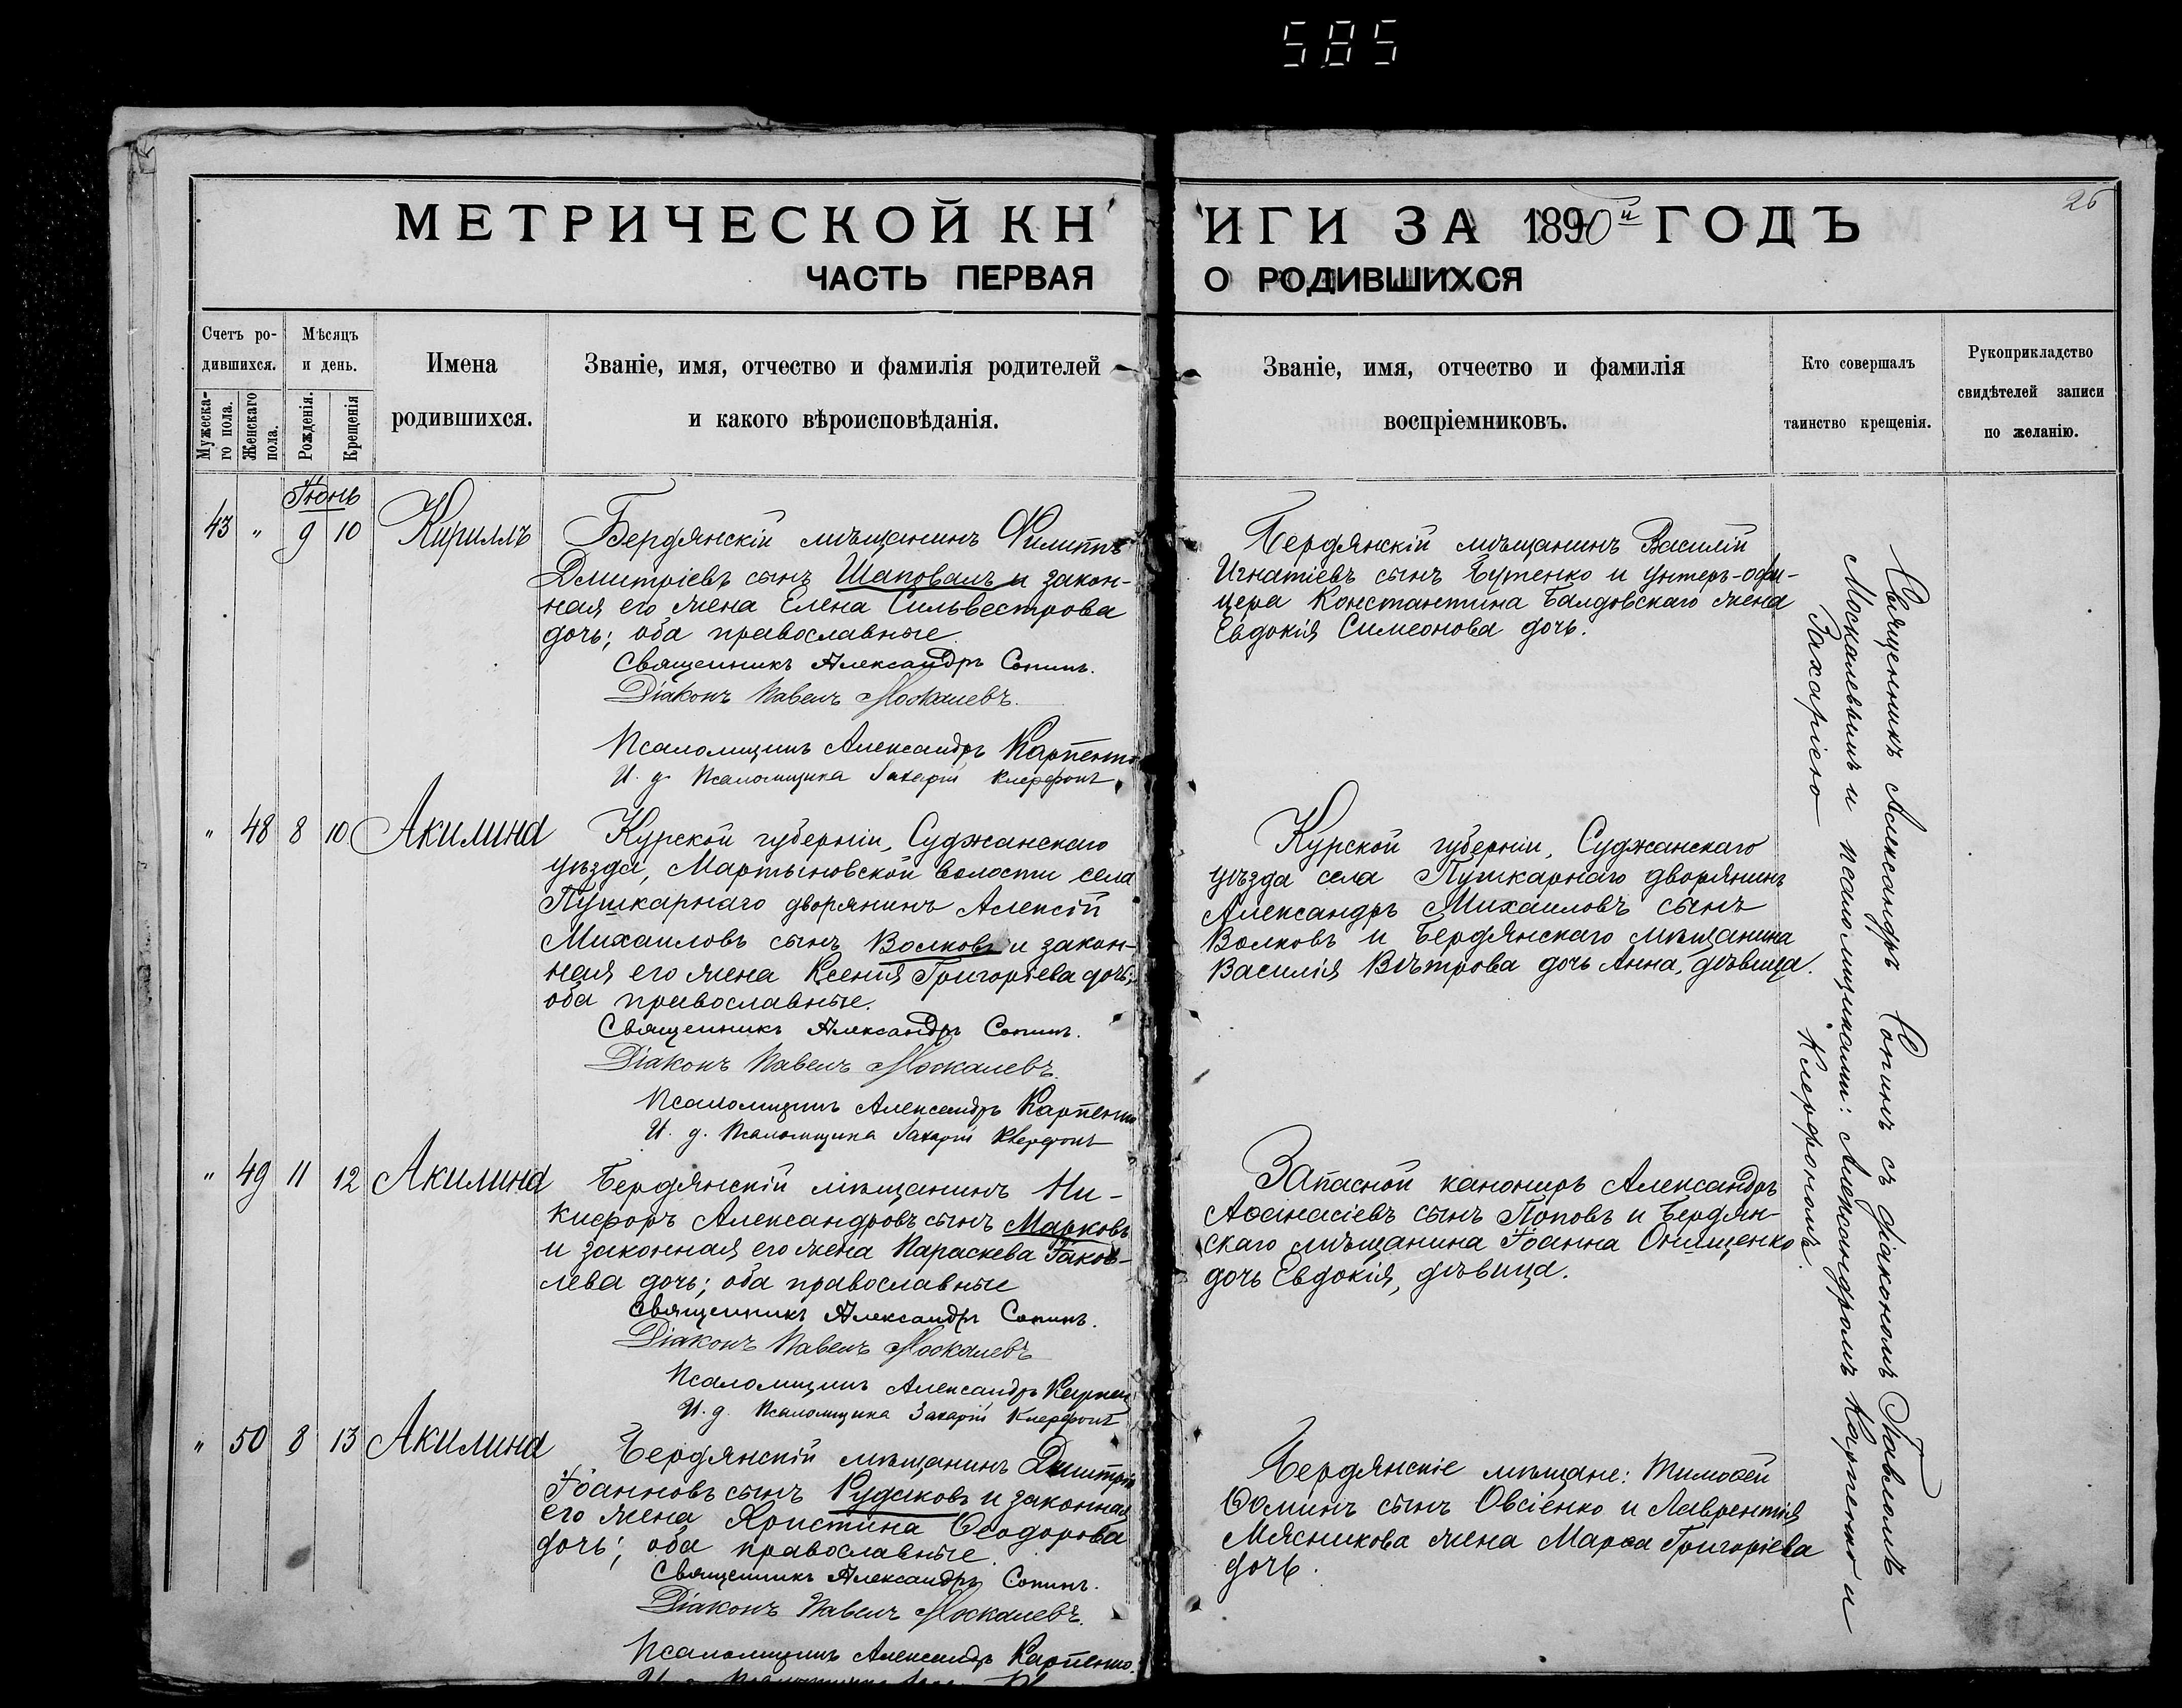 585
26
МЕТРИЧЕСКОЙ КНИГИ ЗА 1890й ГОДЪ
ЧАСТЬ ПЕРВАЯ О РОДИВШИХСЯ
Счетъ ро-
дившихся.
Мужеска-
го пола.
Женскаго
пола.
Мѣсяцъ
и день.
Рожденія.
Крещенія
Имена
родившихся.
Званіе, имя, отчество и фамилія родителей
и какого вѣроисповѣданія.
Званіе, имя, отчество и фамилія
воспріемниковъ.
Кто совершалъ
таинство крещенія.
Рукоприкладство
свидѣтелей записи
по желанію.
Іюнь
43 " 9 10 Кириллъ
Бердянскій мѣщанинъ Филиппъ
Дмитріевъ сынъ Шаповалъ и закон-
ная его жена Елена Сильвестрова
дочь; оба православные.
Священникъ Александръ Сопинъ.
Діаконъ Павелъ Москалевъ.
Псаломщикъ Александръ Карпенко
И. д. Псаломщика Захарій Клерфонъ
Бердянскій мѣщанинъ Василій
Игнатіевъ сынъ Бутенко и унтеръ-офи-
цера Константина Балдовскаго жена
Евдокія Симеонова дочь.
" 48 8 10 Акилина
Курской губерніи, Суджанскаго
уѣзда, Мартыновской волости села
Пушкарнаго дворянинъ Алексій
Михаиловъ сынъ Волковъ и закон-
ная его жена Ксенія Григоріева дочь;
оба православные.
Священникъ Александръ Сопинъ.
Діаконъ Павелъ Москалевъ.
Псаломщикъ Александръ Карпенко
И. д. Псаломщика Захарій Клерфонъ
Курской губерніи, Суджанскаго
уѣзда села Пушкарнаго дворянинъ
Александръ Михаиловъ сынъ
Волковъ и Бердянскаго мѣщанина
Василія Вѣтрова дочь Анна, дѣвица.
" 49 11 12 Акилина
Бердянскій мѣщанинъ Ни-
кифоръ Александровъ сынъ Марковъ
и законная его жена Параскева Іаков-
лева дочь; оба православные
Священникъ Александръ Сопинъ.
Діаконъ Павелъ Москалевъ
Псаломщикъ Александръ Карпен
И. д. Псаломщика Захарій Клерфонъ
Запасной канониръ Александръ
Аѳанасіевъ сынъ Поповъ и Бердян-
скаго мѣщанина Іоанна Онищенко
дочь Евдокія, дѣвица.
" 50 8 13 Акилина
Бердянскій мѣщанинъ Дмитрій
Іоанновъ сынъ Рудаковъ и законная
его жена Христина Ѳеодорова
дочь; оба православные.
Священникъ Александръ Сопинъ.
Діаконъ Павелъ Москалевъ.
Псаломщикъ Александръ Карпенко.
Бердянскіе мѣщане: Тимоѳей
Ѳоминъ сынъ Овсіенко и Лаврентія
Мясникова жена Марѳа Григоріева
дочь.
Священникъ Александръ Сопинъ съ діакономъ Павломъ
Москалевымъ и псаломщиками: Александромъ Карпенко и
Захаріею Клерфономъ.